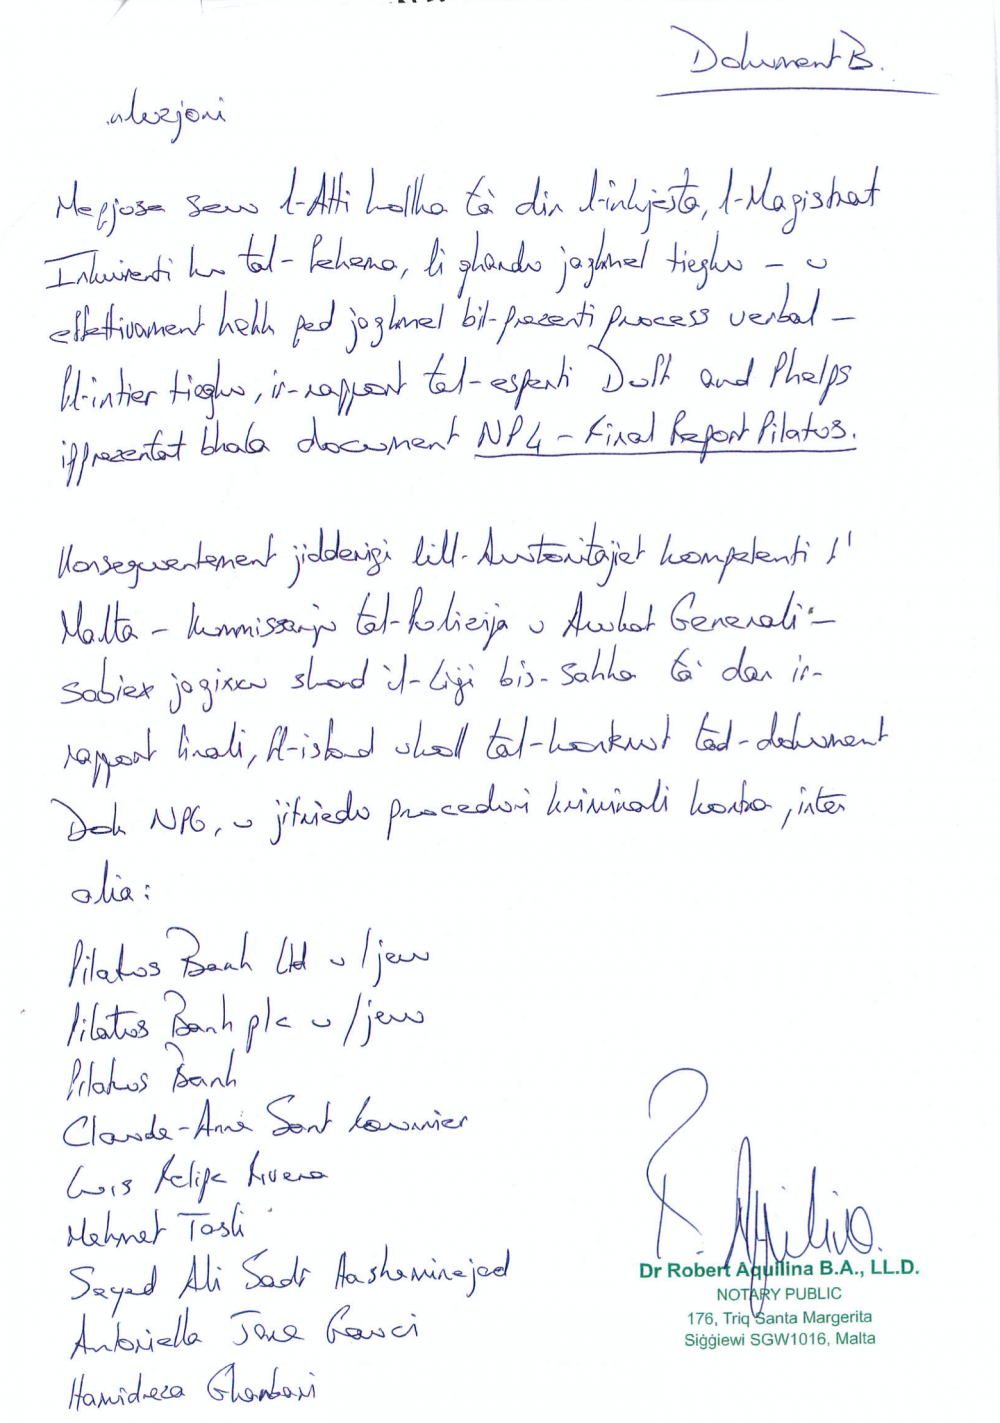 Dokument B.
Meħjusa sew l-Atti kollha ta' din l-inkjesta, l-Magistrat
Inkwirenti hu tal-fehema, li għandu jagħmel tiegħu – u
effettivament hekk qed jagħmel bil-prezenti process verbal –
fl-intier tiegħu, ir-rapport tal-esperti Duff and Phelps
ippreżentat bħala document NP4 – Final Report Pilatus.
Konsegwentement jidderiġi lill-Awtoritajiet kompetenti f'
Malta – Kummissarju tal-Pulizija u Avukat Ġenerali –
sabiex jaġixxu skond il-Liġi bis-saħħa ta' dan ir-
rapport finali, fl-isfond ukoll tal-kontenut tad-dokument
Dok NP6, u jitniedu proceduri kriminali kontra, inter
alia:
Pilatus Bank Ltd u/jew
Pilatus Bank plc u/jew
Pilatus Bank
Claude-Ann Sant Fournier
Luis Felipe Rivera
Mehmet Tasli
Seyed Ali Sadr Hasheminejad
Antoniella Jane Gauci
Hamidreza Ghanbari
R. Aquilina.
Dr Robert Aquilina B.A., LL.D.
NOTARY PUBLIC
176, Triq Santa Margerita
Siġġiewi SGW1016, Malta